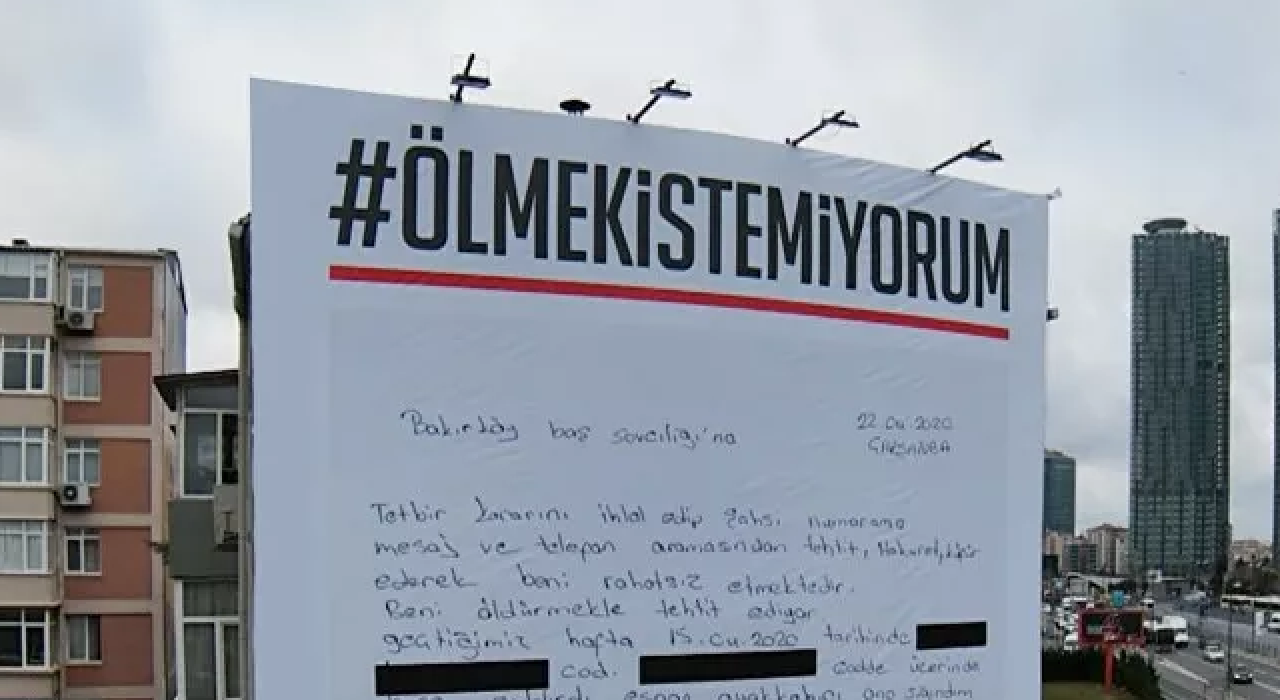 #ÖLMEKİSTEMİYORUM
Bakırköy baş savcılığı'na
22.04.2020
ÇARŞAMBA
Tetbir kararını ihlal edip şahsi numarama
mesaj ve telepon aramasından tehtit, Hakaret,
ederek beni rahatsız etmektedir.
Beni öldürmekle tehtit ediyor
geçtiğimiz hafta 15.04.2020 tarihinde
cad. cadde üzerinde
esnap ayakkabıcı ona sığındım